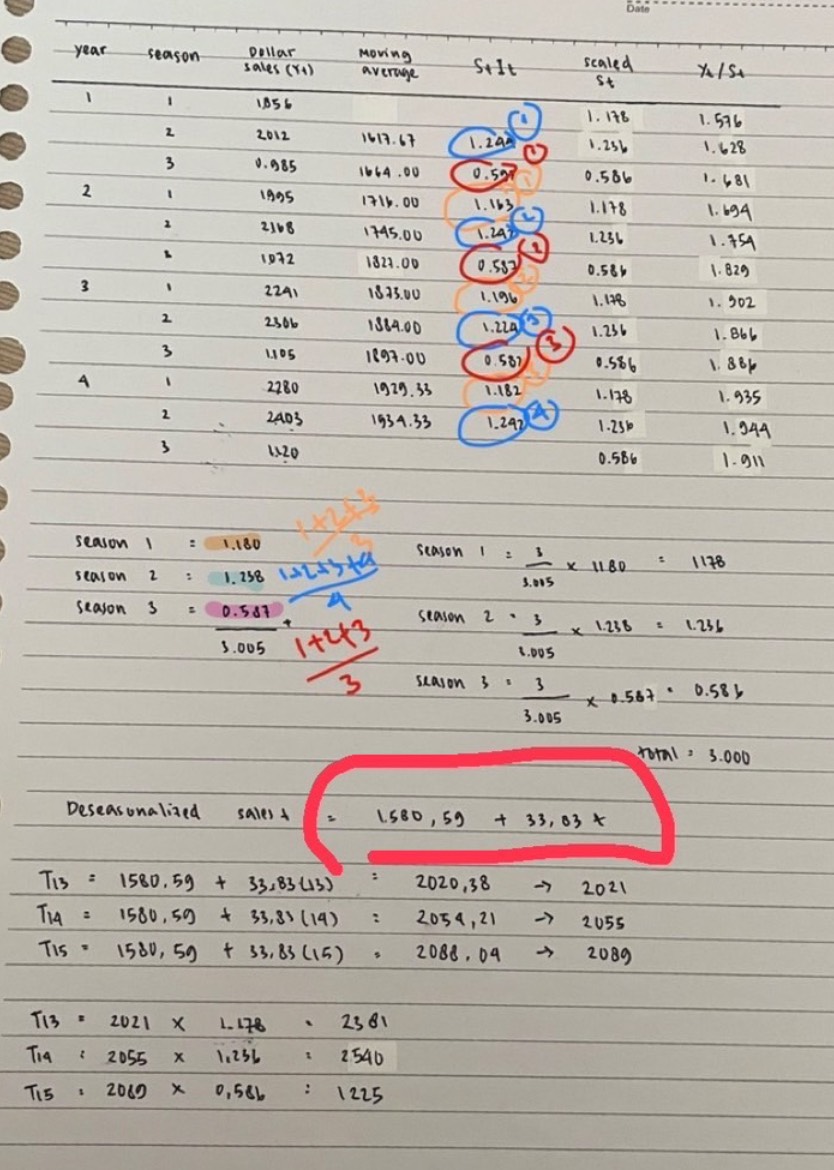 Date
year season Dollar sales (Yt) Moving average StIt scaled St Yt/St
1 1 1.856 1.178 1.576
2 2012 1617.67 1.244 1 1.236 1.628
3 0.985 1664.00 0.591 1 0.586 1.681
2 1 1995 1716.00 1.163 1 1.178 1.694
2 2168 1745.00 1.242 2 1.236 1.754
1072 1827.00 0.587 2 0.586 1.829
3 1 2241 1873.00 1.196 2 1.178 1.902
2 2306 1884.00 1.224 3 1.236 1.866
3 1.105 1897.00 0.582 3 0.586 1.886
4 1 2280 1929.33 1.182 3 1.178 1.935
2 2403 1934.33 1.242 4 1.236 1.944
3 1120 0.586 1.911
season 1 = 1.180 1+2+3/3 season 1 = 3/3.005 × 1180 = 1178
season 2 = 1.238 1+2+3+4/4 season 2 = 3/3.005 × 1.238 = 1.236
season 3 = 0.587 + 1+2+3/3 season 3 = 3/3.005 × 0.587 = 0.586
3.005
total = 3.000
Deseasonalized sales t = 1.580,59 + 33,83 t
T13 = 1580,59 + 33,83 (13) = 2020,38 → 2021
T14 = 1580,59 + 33,83 (14) = 2054,21 → 2055
T15 = 1580,59 + 33,83 (15) = 2088,04 → 2089
T13 = 2021 × 1.178 = 2381
T14 = 2055 × 1,236 = 2540
T15 = 2089 × 0,586 = 1225